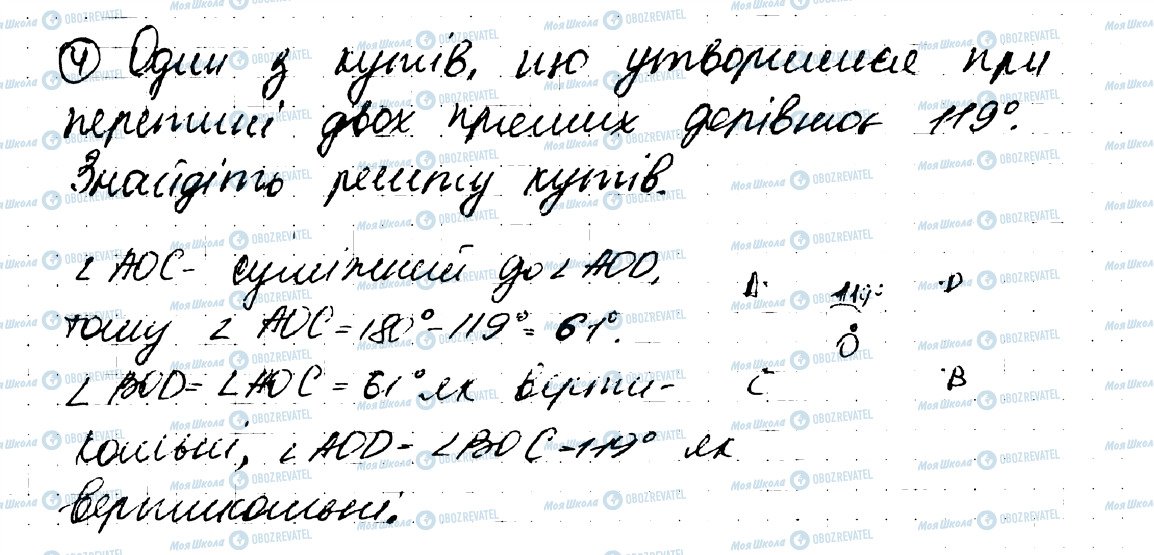 ④ Один з кутів, що утворилися при
перетині двох прямих дорівнює 119°.
Знайдіть решту кутів.
∠AOC - суміжний до ∠AOD,
тому ∠AOC = 180° - 119° = 61°.
∠BOD = ∠AOC = 61° як верти-
кальні, ∠AOD = ∠BOC = 119° як
вертикальні.
A 119° D
O
C B